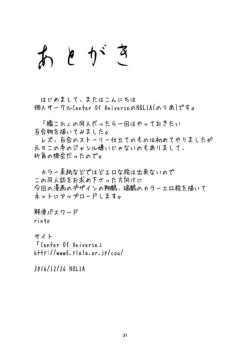 あとがき
はじめまして、またはこんにちは
個人サークルCenter Of UniverseのNOLIA(のりあ)です。
「艦これ」の同人だったら一回はやっておきたい
百合物を描いてみました。
レズ、百合のストーリー仕立てのものは初めてやりましたが
元々この手のジャンル嫌いじゃないのもありまして、
このままの機会だったので。
カラー表紙などではどエロな絵は出来ないので
この同人誌をお求め下さった方向けに
今回の漫画のデザインの翔鶴、瑞鶴のカラーエロ絵を描いて
ネットにアップロードします。
解凍パスワード
ringo
サイト
「Center Of Universe」
http://www5.plala.or.jp/cou/
2016/12/26 NOLIA
31